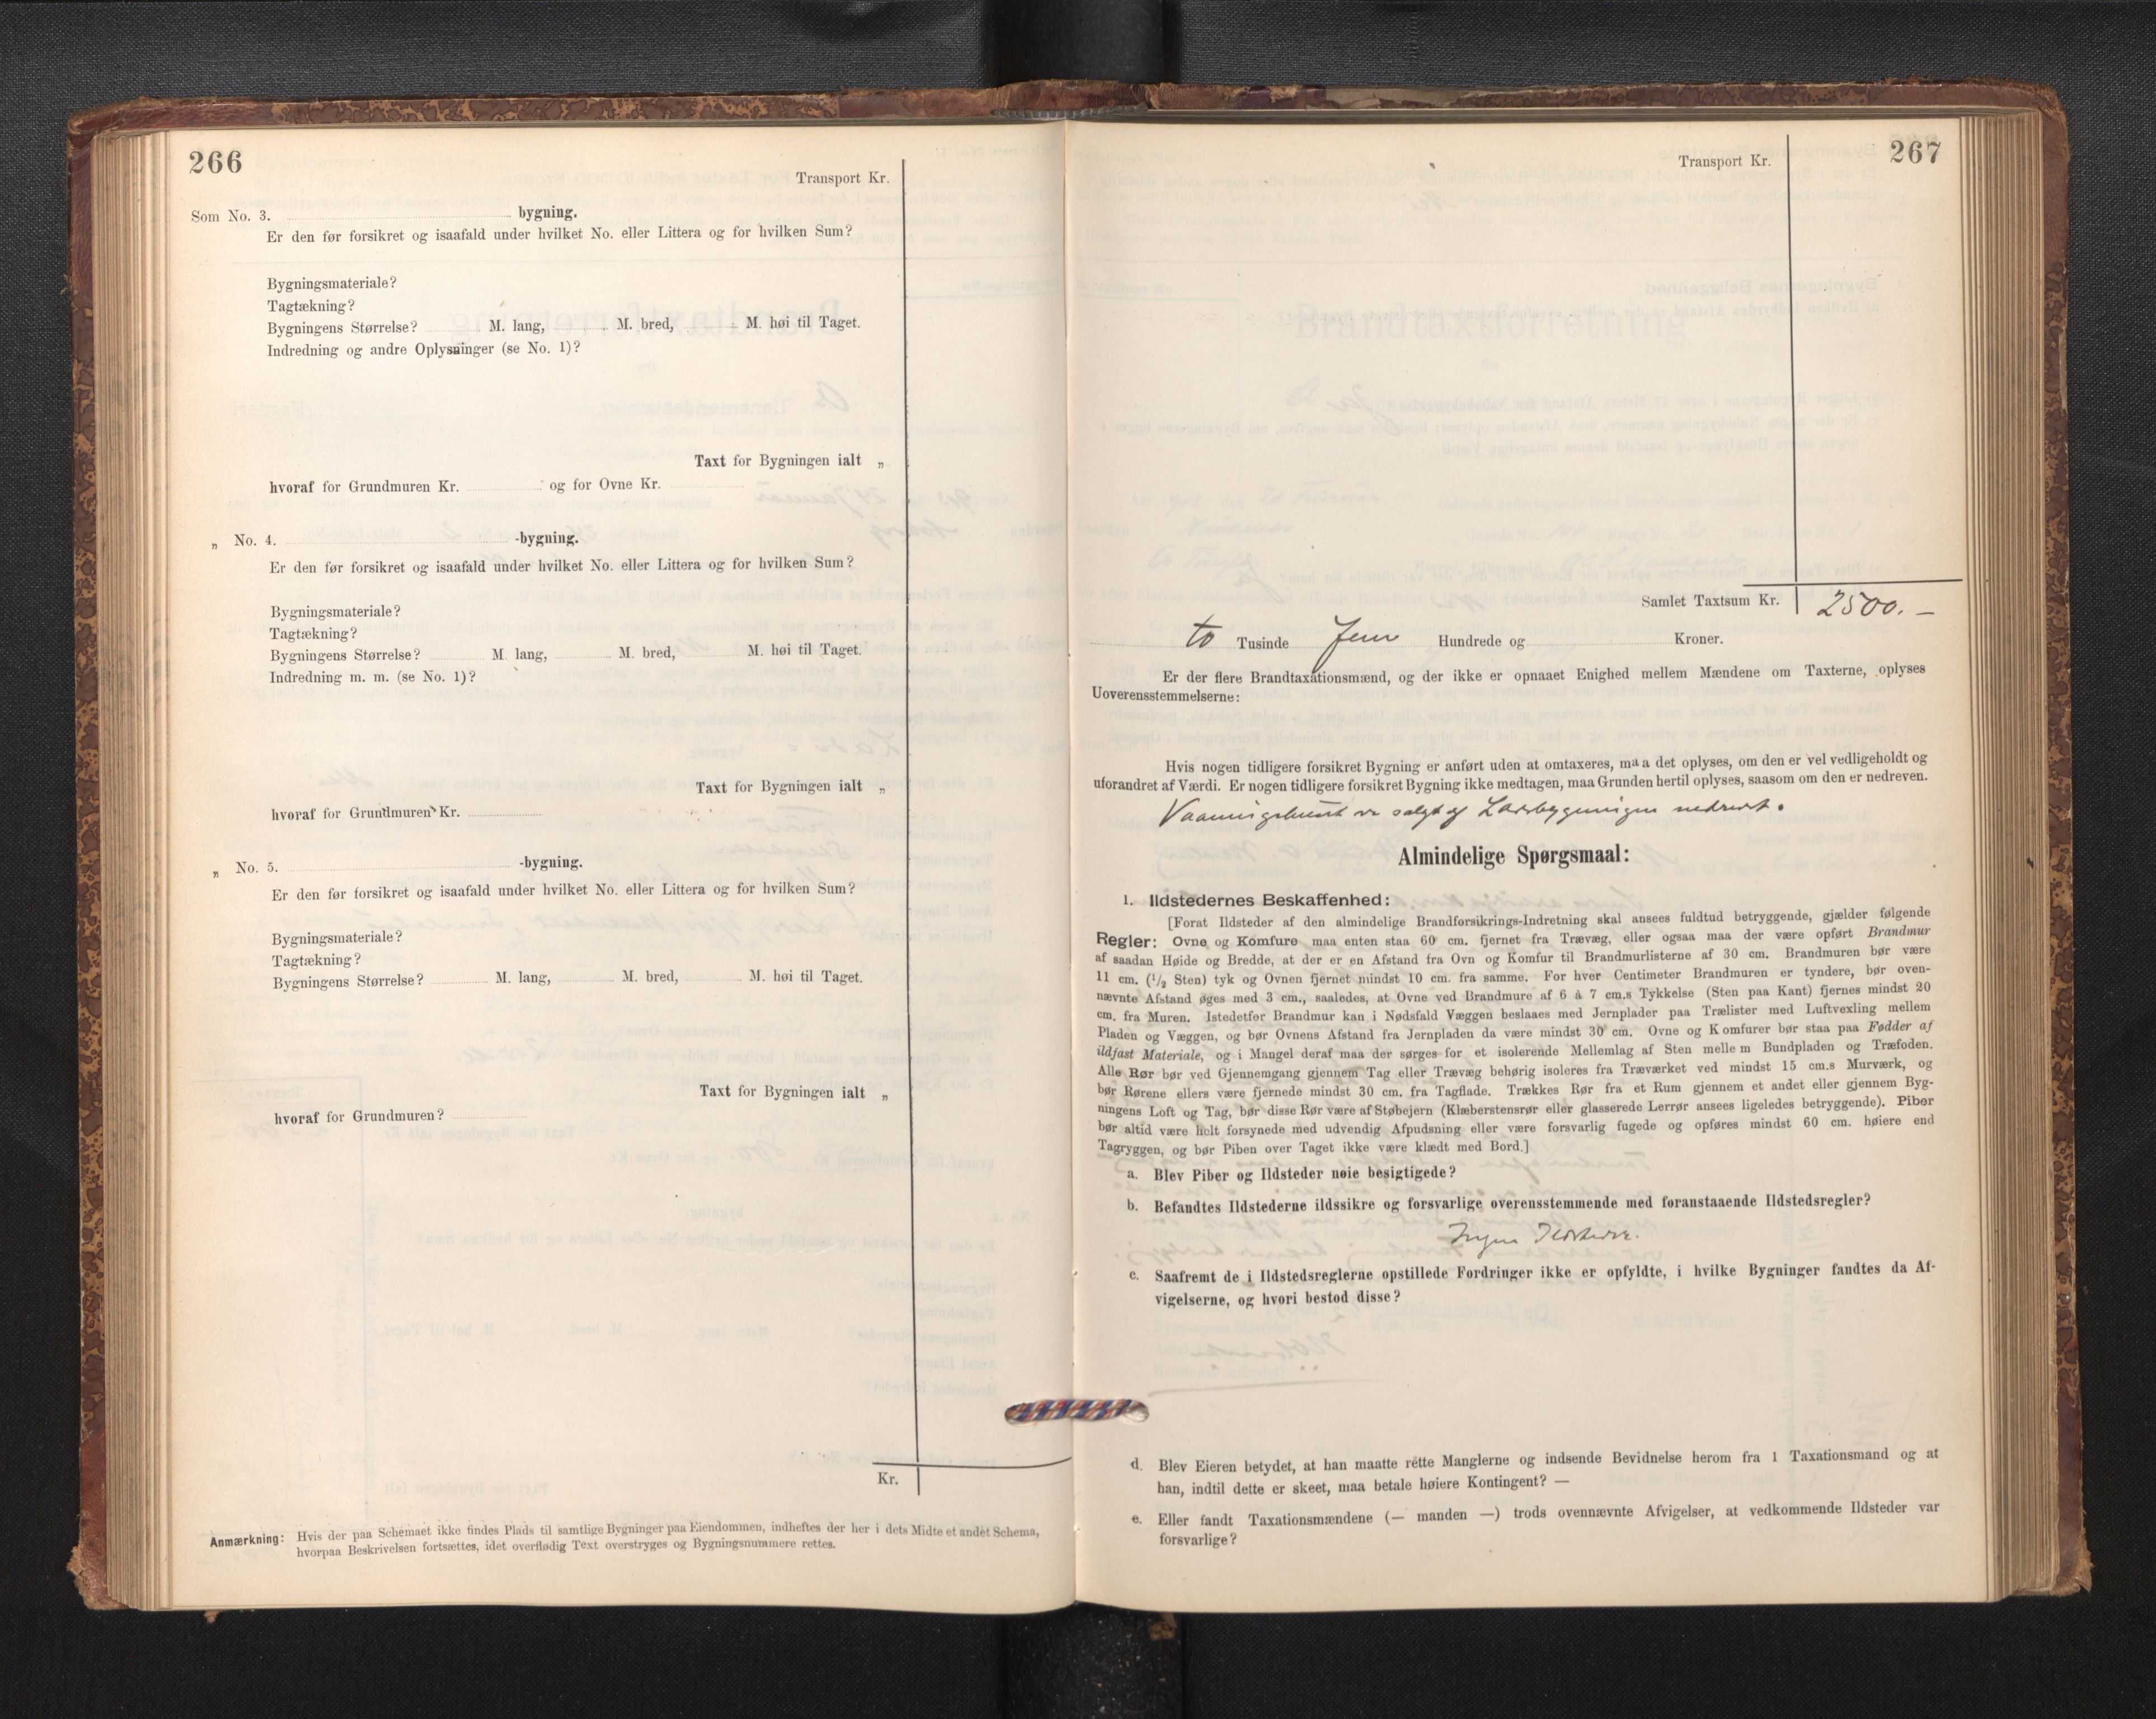 266
Transport Kr.
Som No. 3. bygning.
Er den før forsikret og isaafald under hvilket No. eller Littera og for hvilken Sum?
Bygningsmateriale?
Tagtækning?
Bygningens Størrelse? M. lang, M. bred, M. høi til Taget.
Indredning og andre Oplysninger (se No. 1)?
Taxt for Bygningen ialt „
hvoraf for Grundmuren Kr. og for Ovne Kr.
„ No. 4. -bygning.
Er den før forsikret og isaafald under hvilket No. eller Littera og for hvilken Sum?
Bygningsmateriale?
Tagtækning?
Bygningens Størrelse? M. lang, M. bred, M. høi til Taget.
Indredning m. m. (se No. 1)?
Taxt for Bygningen ialt „
hvoraf for Grundmuren Kr.
„ No. 5. -bygning.
Er den før forsikret og isaafald under hvilket No. eller Littera og for hvilken Sum?
Bygningsmateriale?
Tagtækning?
Bygningens Størrelse? M. lang, M. bred, M. høi til Taget.
Taxt for Bygningen ialt „
hvoraf for Grundmuren?
Kr.
Anmærkning: Hvis der paa Schemaet ikke findes Plads til samtlige Bygninger paa Eiendommen, indheftes der her i dets Midte et andet Schema,
hvorpaa Beskrivelsen fortsættes, idet overflødig Text overstryges og Bygningsnummere rettes.
267
Transport Kr.
Samlet Taxtsum Kr. 2500.—
to Tusinde fem Hundrede og Kroner.
Er der flere Brandtaxationsmænd, og der ikke er opnaaet Enighed mellem Mændene om Taxterne, oplyses
Uoverensstemmelserne:
Hvis nogen tidligere forsikret Bygning er anført uden at omtaxeres, maa det oplyses, om den er vel vedligeholdt og
uforandret af Værdi. Er nogen tidligere forsikret Bygning ikke medtagen, maa Grunden hertil oplyses, saasom om den er nedreven.
Vaaningshuset er solgt og Ladebygningen nedrevet.
Almindelige Spørgsmaal:
1. Ildstedernes Beskaffenhed:
[Forat Ildsteder af den almindelige Brandforsikrings-Indretning skal ansees fuldtud betryggende, gjælder følgende
Regler: Ovne og Komfure maa enten staa 60 cm. fjernet fra Trævæg, eller ogsaa maa der være opført Brandmur
af saadan Høide og Bredde, at der er en Afstand fra Ovn og Komfur til Brandmurlisterne af 30 cm. Brandmuren bør være
11 cm. (1/2 Sten) tyk og Ovnen fjernet mindst 10 cm. fra samme. For hver Centimeter Brandmuren er tyndere, bør oven-
nævnte Afstand øges med 3 cm., saaledes, at Ovne ved Brandmure af 6 à 7 cm.s Tykkelse (Sten paa Kant) fjernes mindst 20
cm. fra Muren. Istedetfor Brandmur kan i Nødsfald Væggen beslaaes med Jernplader paa Trælister med Luftvexling mellem
Pladen og Væggen, og bør Ovnens Afstand fra Jernpladen da være mindst 30 cm. Ovne og Komfurer bør staa paa Fødder af
ildfast Materiale, og i Mangel deraf maa der sørges for et isolerende Mellemlag af Sten mellem Bundpladen og Træfoden.
Alle Rør bør ved Gjennemgang gjennem Tag eller Trævæg behørig isoleres fra Træværket ved mindst 15 cm.s Murværk, og
bør Rørene ellers være fjernede mindst 30 cm. fra Tagflade. Trækkes Rør fra et Rum gjennem et andet eller gjennem Byg-
ningens Loft og Tag, bør disse Rør være af Støbejern (Klæberstensrør eller glasserede Lerrør ansees ligeledes betryggende). Piber
bør altid være helt forsynede med udvendig Afpudsning eller være forsvarlig fugede og opføres mindst 60 cm. høiere end
Tagryggen, og bør Piben over Taget ikke være klædt med Bord.]
a. Blev Piber og Ildsteder nøie besigtigede?
b. Befandtes Ildstederne ildssikre og forsvarlige overensstemmende med foranstaaende Ildstedsregler?
Ingen Ildsteder.
c. Saafremt de i Ildstedsreglerne opstillede Fordringer ikke er opfyldte, i hvilke Bygninger fandtes da Af-
vigelserne, og hvori bestod disse?
d. Blev Eieren betydet, at han maatte rette Manglerne og indsende Bevidnelse herom fra 1 Taxationsmand og at
han, indtil dette er skeet, maa betale høiere Kontingent? —
e. Eller fandt Taxationsmændene (— manden —) trods ovennævnte Afvigelser, at vedkommende Ildsteder var
forsvarlige?